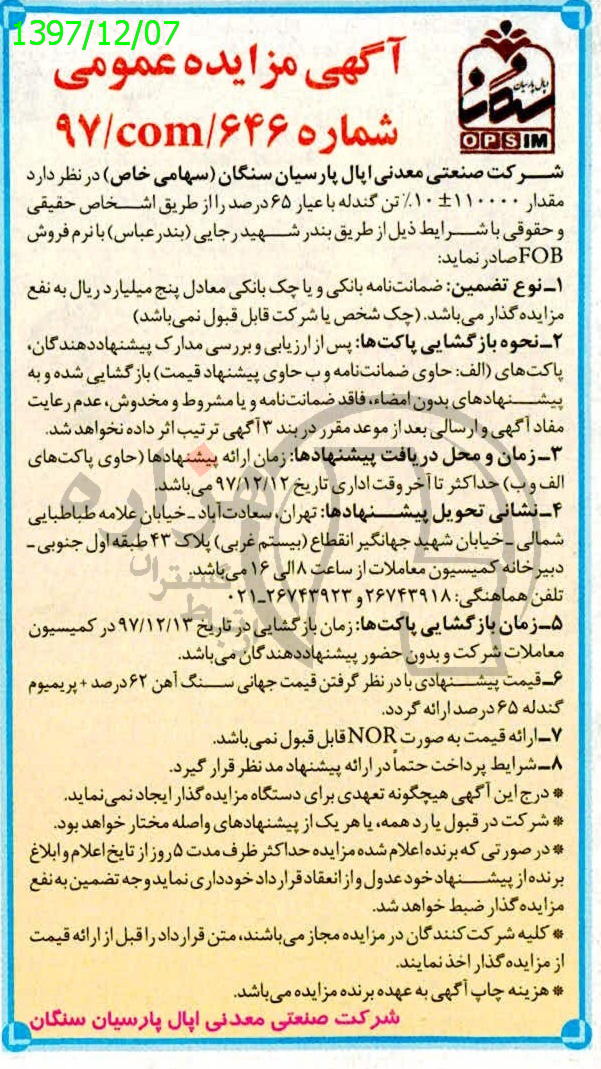 1397/12/07
آگهی مزایده عمومی
شماره ۹۷/com/۶۴۶
اپال پارسیان
سنگان
OPSIM
شرکت صنعتی معدنی اپال پارسیان سنگان (سهامی خاص) در نظر دارد
مقدار ۱۱۰۰۰۰ ± ۱۰٪ تن گندله با عیار ۶۵ درصد را از طریق اشخاص حقیقی
و حقوقی با شرایط ذیل از طریق بندر شهید رجایی (بندرعباس) با نرم فروش
FOB صادر نماید:
۱ـ نوع تضمین: ضمانت‌نامه بانکی و یا چک بانکی معادل پنج میلیارد ریال به نفع
مزایده‌گذار می‌باشد. (چک شخص یا شرکت قابل قبول نمی‌باشد)
۲ـ نحوه بازگشایی پاکت‌ها: پس از ارزیابی و بررسی مدارک پیشنهاددهندگان،
پاکت‌های (الف: حاوی ضمانت‌نامه و ب حاوی پیشنهاد قیمت) بازگشایی شده و به
پیشنهادهای بدون امضاء، فاقد ضمانت‌نامه و یا مشروط و مخدوش، عدم رعایت
مفاد آگهی و ارسالی بعد از موعد مقرر در بند ۳ آگهی ترتیب اثر داده نخواهد شد.
۳ـ زمان و محل دریافت پیشنهادها: زمان ارائه پیشنهادها (حاوی پاکت‌های
الف و ب) حداکثر تا آخر وقت اداری تاریخ ۹۷/۱۲/۱۲ می‌باشد.
۴ـ نشانی تحویل پیشنهادها: تهران، سعادت‌آباد ـ خیابان علامه طباطبایی
شمالی ـ خیابان شهید جهانگیر انقطاع (بیستم غربی) پلاک ۴۳ طبقه اول جنوبی ـ
دبیرخانه کمیسیون معاملات از ساعت ۸ الی ۱۶ می‌باشد.
تلفن هماهنگی: ۲۶۷۴۳۹۱۸ و ۲۶۷۴۳۹۲۳ـ۰۲۱
۵ـ زمان بازگشایی پاکت‌ها: زمان بازگشایی در تاریخ ۹۷/۱۲/۱۳ در کمیسیون
معاملات شرکت و بدون حضور پیشنهاددهندگان می‌باشد.
۶ـ قیمت پیشنهادی با در نظر گرفتن قیمت جهانی سنگ آهن ۶۲ درصد + پریمیوم
گندله ۶۵ درصد ارائه گردد.
۷ـ ارائه قیمت به صورت NOR قابل قبول نمی‌باشد.
۸ـ شرایط پرداخت حتماً در ارائه پیشنهاد مد نظر قرار گیرد.
* درج این آگهی هیچگونه تعهدی برای دستگاه مزایده‌گذار ایجاد نمی‌نماید.
* شرکت در قبول یا رد همه، یا هر یک از پیشنهادهای واصله مختار خواهد بود.
* در صورتی که برنده اعلام شده مزایده حداکثر ظرف مدت ۵ روز از تایخ اعلام و ابلاغ
برنده از پیشنهاد خود عدول و از انعقاد قرارداد خودداری نماید وجه تضمین به نفع
مزایده‌گذار ضبط خواهد شد.
* کلیه شرکت‌کنندگان در مزایده مجاز می‌باشند، متن قرارداد را قبل از ارائه قیمت
از مزایده‌گذار اخذ نمایند.
* هزینه چاپ آگهی به عهده برنده مزایده می‌باشد.
شرکت صنعتی معدنی اپال پارسیان سنگان